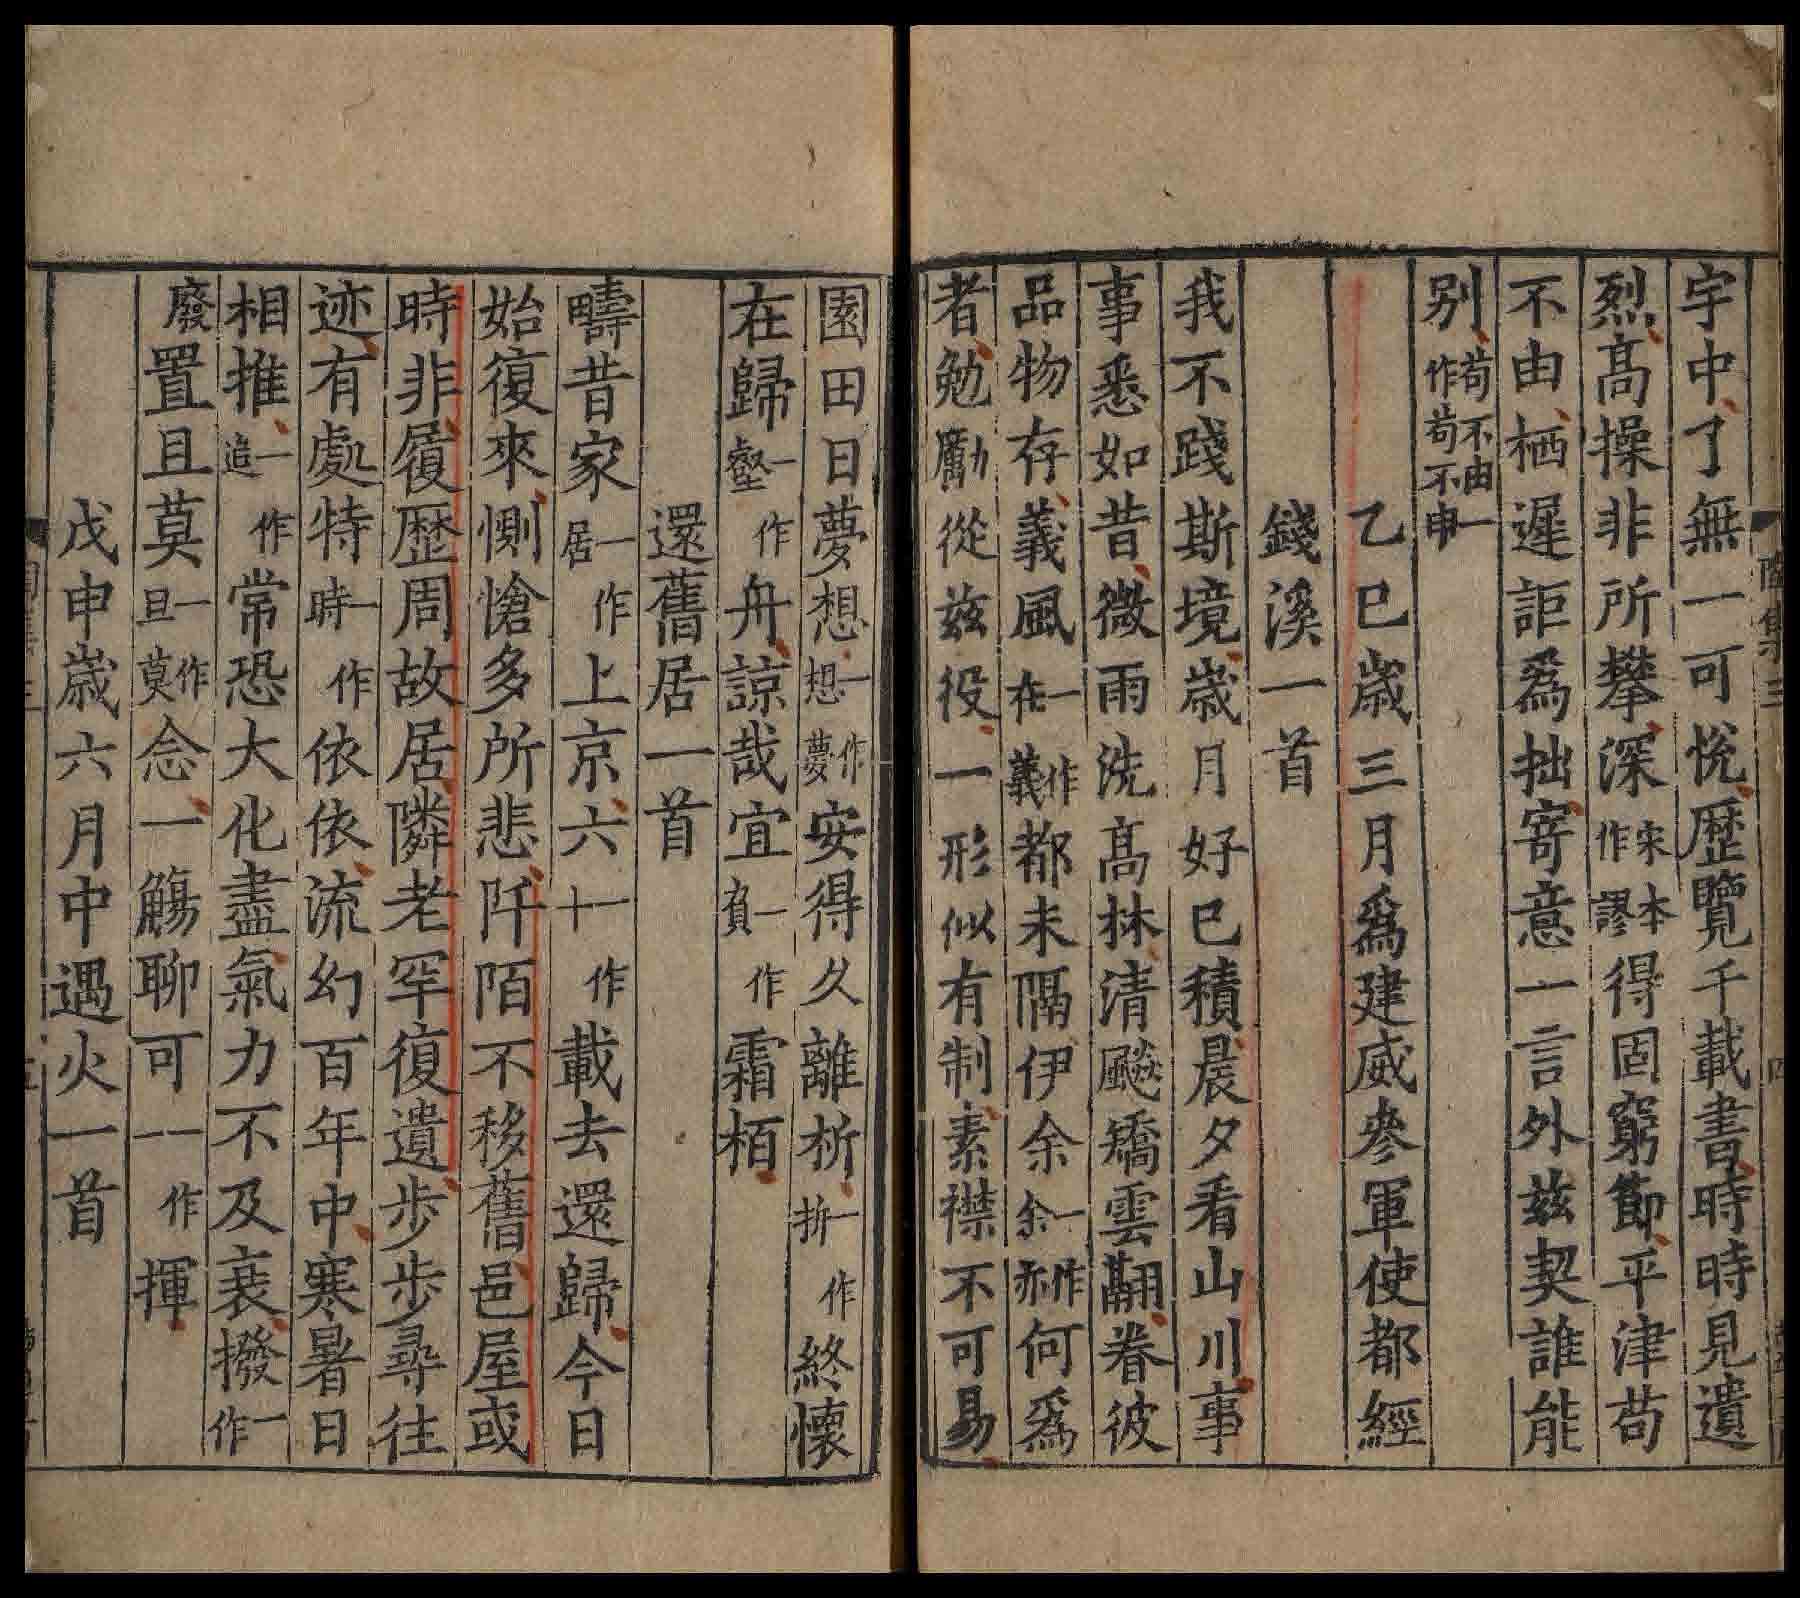 宇中了無一可悅歷覽千載書時時見遺
烈高操非所攀深宋本作謬得固窮節平津苟
不由栖遲詎爲拙寄意一言外兹契誰能
别苟不由一作苟不申
乙巳歲三月爲建威參軍使都經
錢溪一首
我不踐斯境歲月好已積晨夕看山川事
事悉如昔微雨洗高林清飈矯雲翮眷彼
品物存義風一作在義都未隔伊余一作余亦何爲
者勉勵從兹役一形似有制素襟不可易
園田日夢想一作想夢安得久離析一作拆終懷
在歸一作壑舟諒哉宜一作負霜栢
還舊居一首
疇昔家一作居上京六一作十載去還歸今日
始復來惻愴多所悲阡陌不移舊邑屋或
時非履歷周故居隣老罕復遺步步尋往
迹有處特一作時依依流幻百年中寒暑日
相推一作追常恐大化盡氣力不及衰撥一作
廢置且莫一作旦莫念一觴聊可一作一揮
戊申歲六月中遇火一首